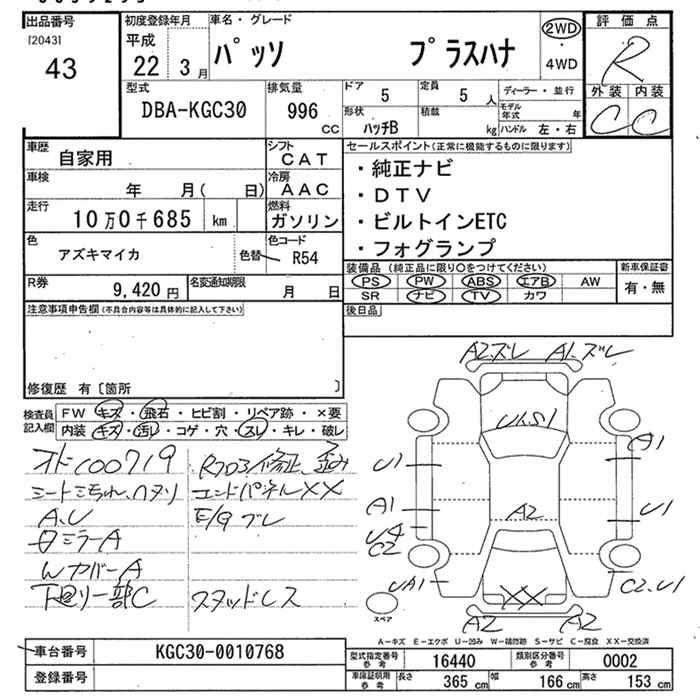 出品番号
[2043]
43
初度登録年月
平成
22 3月
車名・グレード
パッソ プラスハナ
2WD
・
4WD
評価点
R
外装 内装
C C
型式
DBA-KGC30
排気量
996
cc
ドア
5
定員
5 人
形状
ハッチB
積載
kg
ディーラー・並行
モデル年式 年
ハンドル 左・右
車歴
自家用
シフト
CAT
車検
年 月( 日)
冷房
AAC
走行
10万0千685 km
燃料
ガソリン
色
アズキマイカ
色替
色コード
R54
R券
9,420 円
名変通知期限
月 日
セールスポイント(正常に機能するものに限ります)
・純正ナビ
・DTV
・ビルトインETC
・フォグランプ
装備品(純正品に限り○をつけてください)
PS PW ABS エアB AW
SR ナビ TV カワ
新車保証書
有・無
後日品
注意事項申告欄(不具合内容等は具体的に記入して下さい)
修復歴 有〔箇所 〕
検査員記入欄
FW キズ・飛石・ヒビ割・リペア跡・×要
内装 キズ・汚レ・コゲ・穴・スレ・キレ・破レ
シートミちれ、ハタリ
エンドパネルXX
A.U
E/gブレ
日ミラーA
WカバーA
下廻り一部C
スタッドレス
A2.ズレ A1.ズレ
U1.S1
A1
U1
A1
A2
U1
C2
UA1
XX
C2.U1
A2 A2
スペア
A-キズ E-エクボ U-凹み W-補修跡 S-サビ C-腐食 XX-交換済
車台番号
KGC30-0010768
登録番号
型式指定番号
参考
16440
類別区分番号
参考
0002
車庫証明用
参考
長さ
365 cm
幅
166 cm
高さ
153 cm